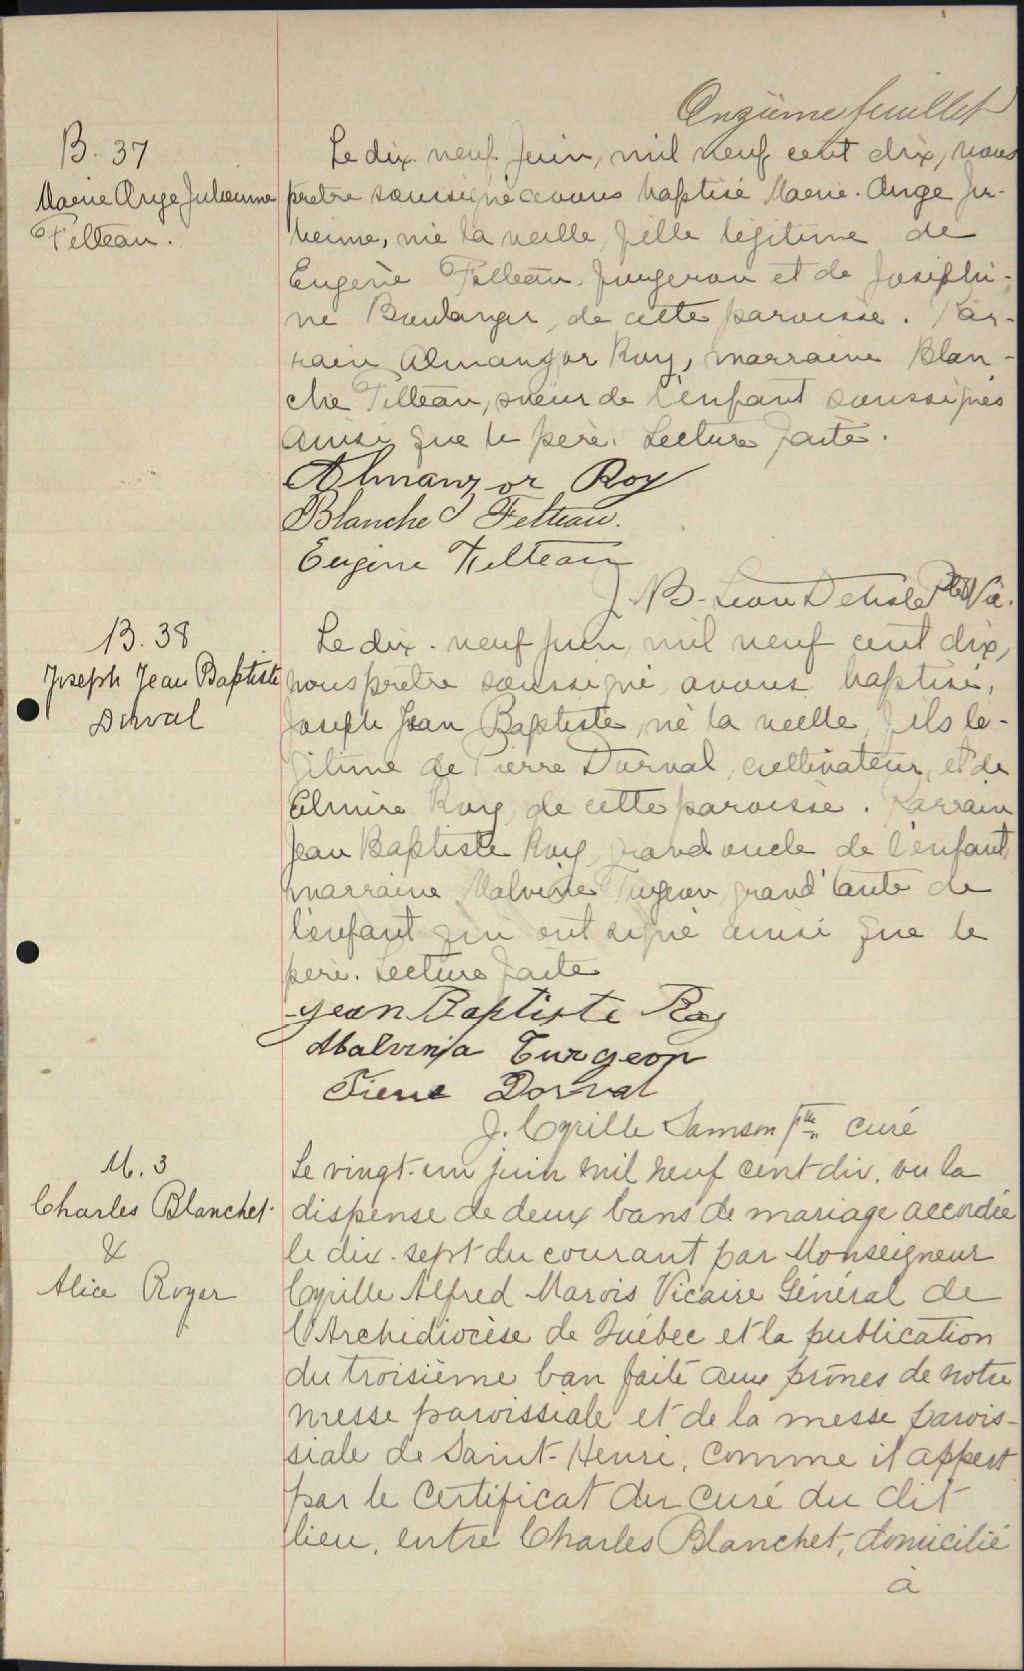 Onzième feuillet
B. 37
Marie Ange Julienne
Felteau.
Le dix-neuf Juin, mil neuf cent dix, nous
prêtre soussigné avons baptisé Marie-Ange Ju-
lienne, née la veille, fille légitime de
Eugène Felteau, forgeron et de Joséphi-
ne Boulanger, de cette paroisse. Par-
rain Almanzor Roy, marraine Blan-
che Felteau, soeur de l'enfant soussignés
ainsi que le père. Lecture faite.
Almanzor Roy
Blanche Felteau.
Eugène Felteau
J. B. Léon Delisle Ptre Vic.
B. 38
Joseph Jean Baptiste
Dorval
Le dix-neuf juin, mil neuf cent dix,
nous prêtre soussigné, avons baptisé,
Joseph Jean Baptiste, né la veille, fils lé-
gitime de Pierre Dorval, cultivateur, et de
Elmire Roy, de cette paroisse. Parrain
Jean Baptiste Roy, grand oncle de l'enfant
marraine Malvina Turgeon, grand'tante de
l'enfant qui ont signé ainsi que le
père. Lecture faite
Jean Baptiste Roy
Malvinia Turgeon
Pierre Dorval
J. Cyrille Samson Ptre curé
M. 3
Charles Blanchet
&
Alice Royer
Le vingt-un juin mil neuf cent dix, vu la
dispense de deux bans de mariage accordée
le dix-sept du courant par Monseigneur
Cyrille Alfred Marois Vicaire Général de
l'Archidiocèse de Québec et la publication
du troisième ban faite aux prônes de notre
messe paroissiale et de la messe parois-
siale de Saint-Henri, comme il appert
par le certificat du curé du dit
lieu, entre Charles Blanchet, domicilié
à